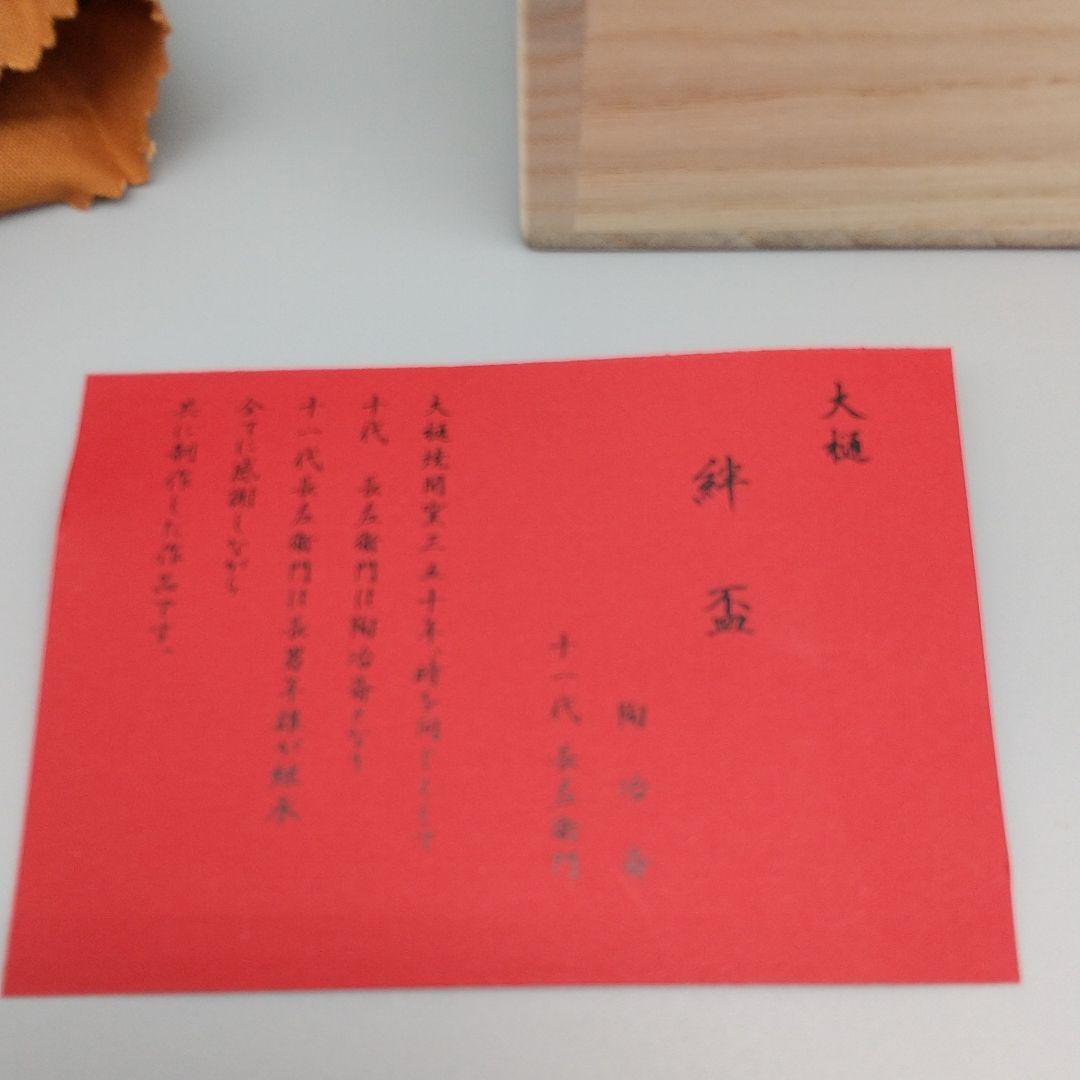 大樋
絆 盃
陶 冶 斎
十一代 長左衛門
大樋焼開窯三五十年、時を同じくして
十代 長左衛門は陶冶斎となり
十一代長左衛門は長男年雄が継承
全てに感謝しながら
共に制作した作品です。